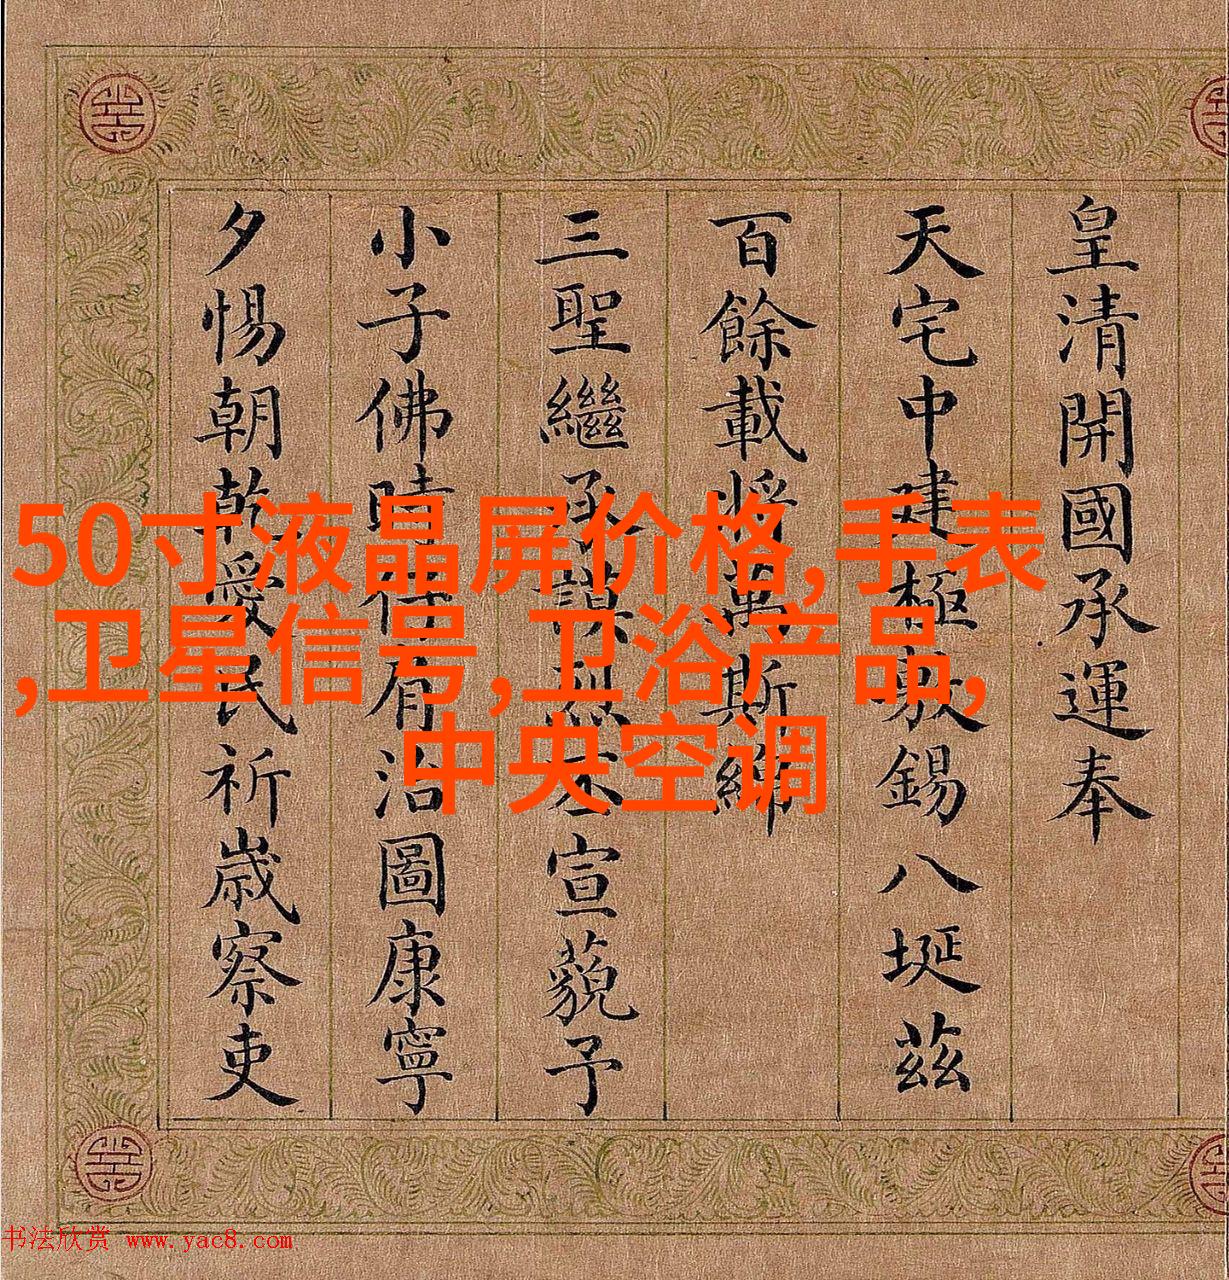 皇清開國承運奉
天宅中建極敷錫八埏茲
百餘載將萬斯綿
三聖繼承謨烈丕宣藐予
小子佛時仔有治圖康寧
夕惕朝乾愛民祈歲察吏
50寸液晶屏价格,手表
,卫星信号,卫浴产品,
中央空调
书法欣赏 www.yac8.com